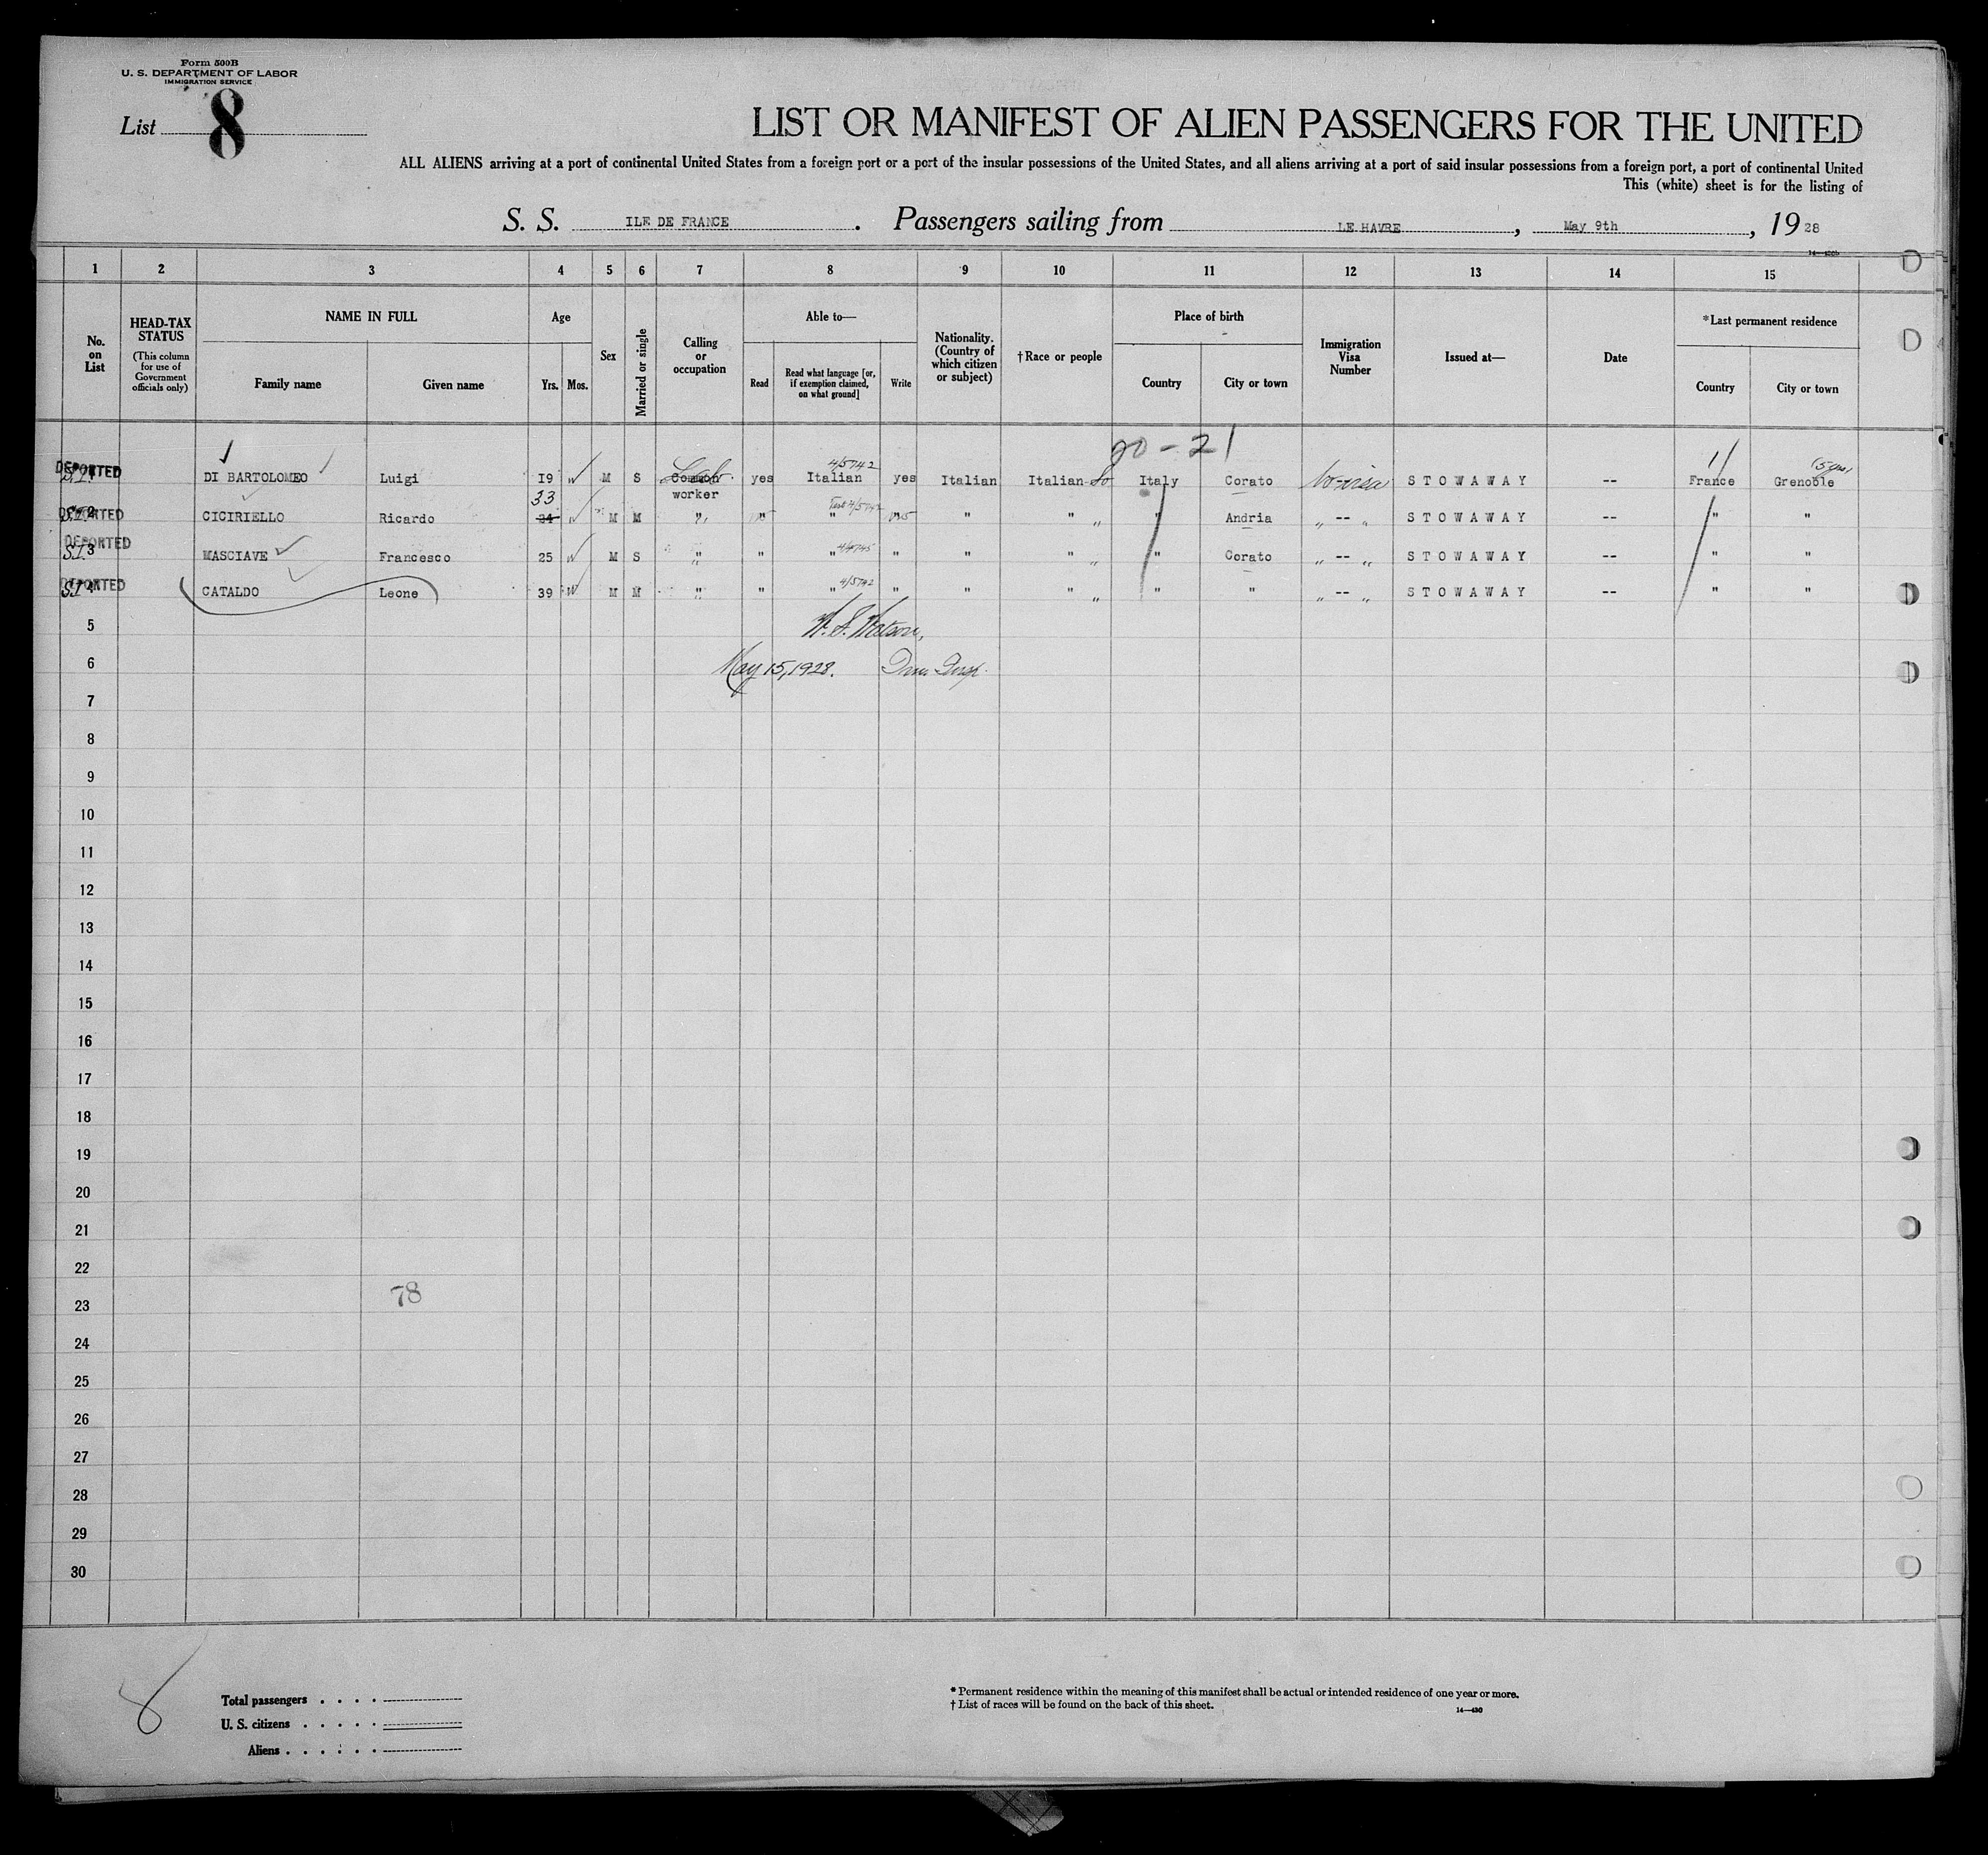 Form 500B
U. S. DEPARTMENT OF LABOR
IMMIGRATION SERVICE
List 8
LIST OR MANIFEST OF ALIEN PASSENGERS FOR THE UNITED
ALL ALIENS arriving at a port of continental United States from a foreign port or a port of the insular possessions of the United States, and all aliens arriving at a port of said insular possessions from a foreign port, a port of continental United
This (white) sheet is for the listing of
S. S. ILE DE FRANCE. Passengers sailing from LE HAVRE, May 9th, 1928
1 2 3 4 5 6 7 8 9 10 11 12 13 14 15
No. on List
HEAD-TAX STATUS
(This column for use of Government officials only)
NAME IN FULL
Family name Given name
Age
Yrs. Mos.
Sex
Married or single
Calling or occupation
Able to—
Read
Read what language [or, if exemption claimed, on what ground]
Write
Nationality. (Country of which citizen or subject)
†Race or people
Place of birth
Country City or town
Immigration Visa Number
Issued at—
Date
*Last permanent residence
Country City or town
20-21
DEPORTED S.I. 1 DI BARTOLOMEO Luigi 19 M S Common worker yes Italian 4/5742 yes Italian Italian So Italy Corato No visa STOWAWAY -- France Grenoble (5 yrs)
DEPORTED S.I. 2 CICIRIELLO Ricardo 34 33 M M " " " " " " " Andria " -- " STOWAWAY -- " "
DEPORTED S.I. 3 MASCIAVE Francesco 25 M S " " " " " " " Corato " -- " STOWAWAY -- " "
DEPORTED S.I. 4 CATALDO Leone 39 M M " " " 4/5742 " " " " " " -- " STOWAWAY -- " "
5
6
7
8
9
10
11
12
13
14
15
16
17
18
19
20
21
22
23
24
25
26
27
28
29
30
May 15, 1928.
78
8
Total passengers . . . .
U. S. citizens . . . . .
Aliens . . . . . .
* Permanent residence within the meaning of this manifest shall be actual or intended residence of one year or more.
† List of races will be found on the back of this sheet.
14—430